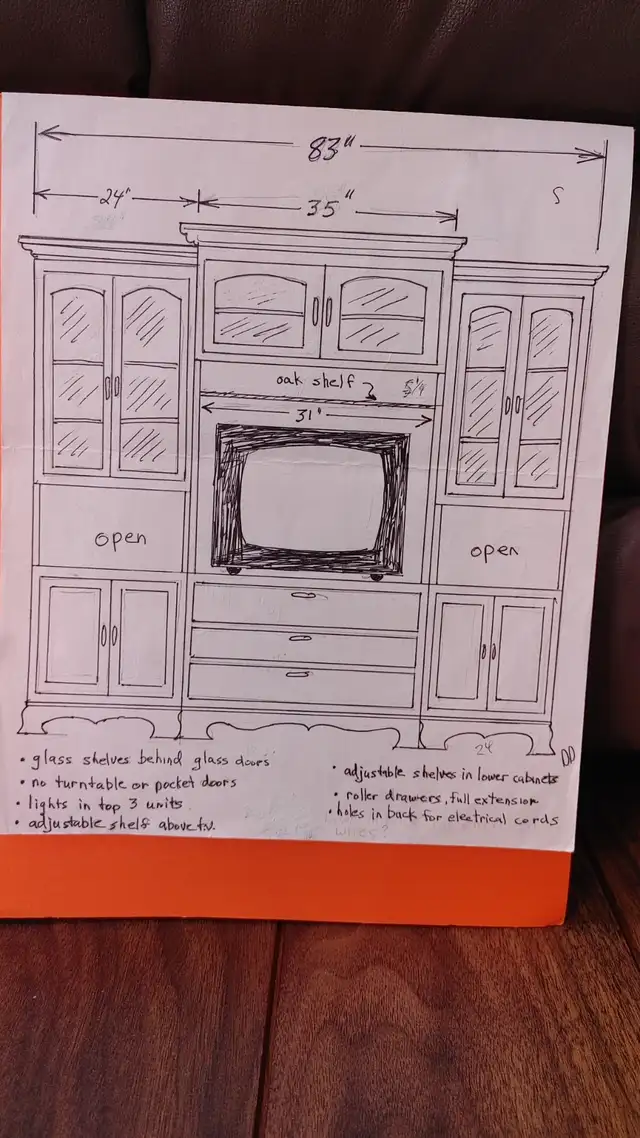 83"
24"
35"
S
oak shelf
31"
open
open
24
• glass shelves behind glass doors
• no turntable or pocket doors
• lights in top 3 units
• adjustable shelf above t.v.
• adjustable shelves in lower cabinets
• roller drawers, full extension
• holes in back for electrical cords